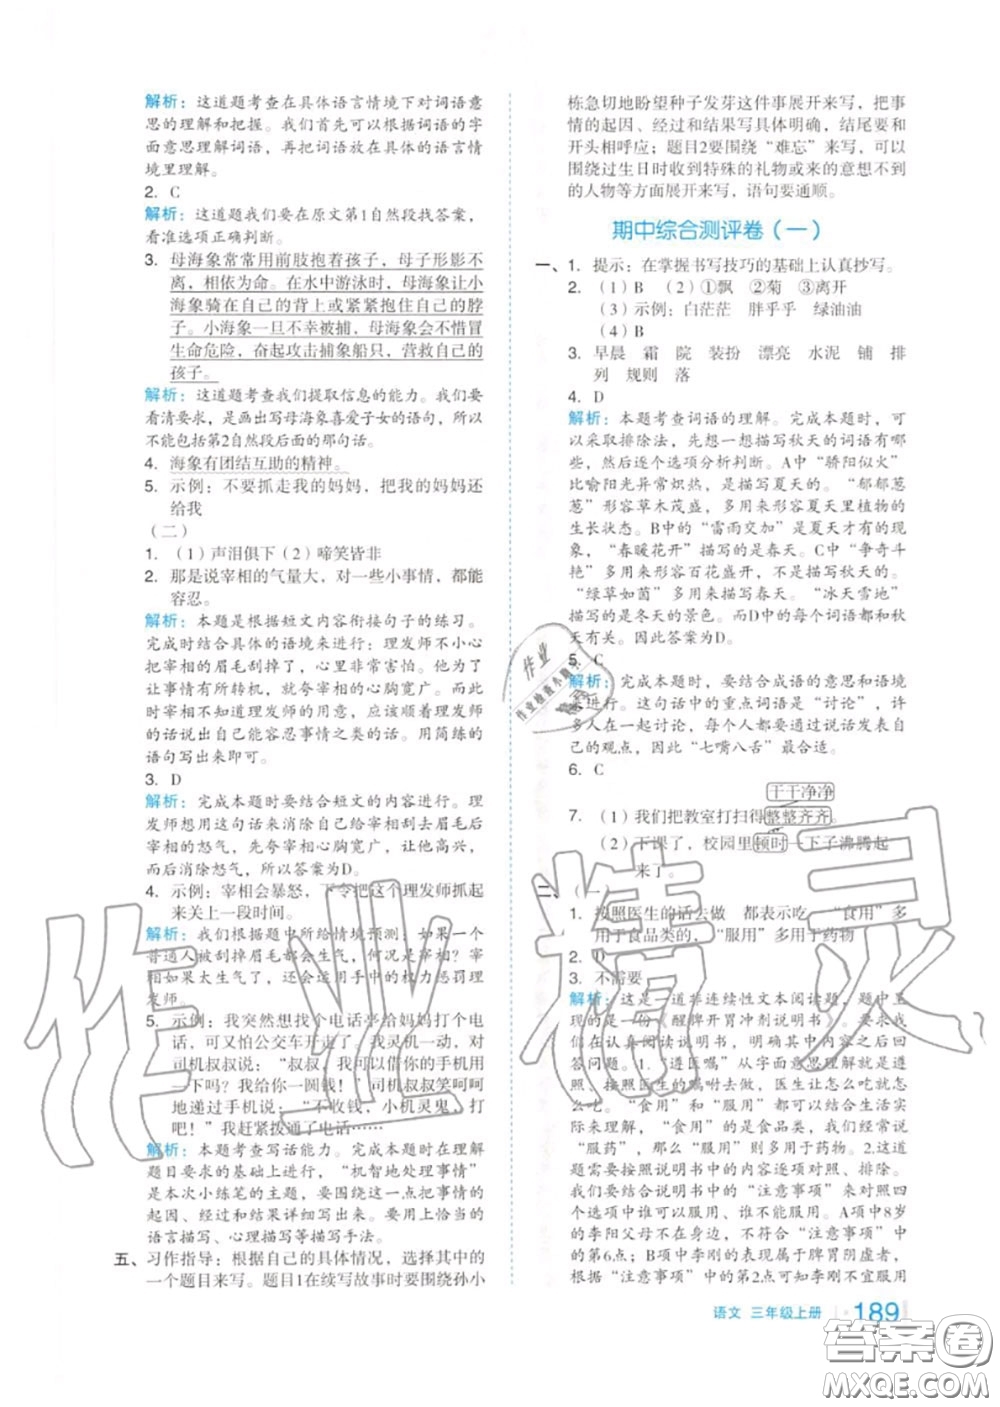 解析：这道题考查在具体语言情境下对词语意
思的理解和把握。我们首先可以根据词语的字
面意思理解词语，再把词语放在具体的语言情
境里理解。
2. C
解析：这道题我们要在原文第1自然段找答案，
看准选项正确判断。
3. 母海象常常用前肢抱着孩子，母子形影不
离，相依为命。在水中游泳时，母海象让小
海象骑在自己的背上或紧紧抱住自己的脖
子。小海象一旦不幸被捕，母海象会不惜冒
生命危险，奋起攻击捕象船只，营救自己的
孩子。
解析：这道题考查我们提取信息的能力。我们要
看清要求，是画出写母海象喜爱子女的语句，所以
不能包括第2自然段后面的那句话。
4. 海象有团结互助的精神。
5. 示例：不要抓走我的妈妈，把我的妈妈还
给我
（二）
1.（1）声泪俱下（2）啼笑皆非
2. 那是说宰相的气量大，对一些小事情，都能
容忍。
解析：本题是根据短文内容衔接句子的练习。
完成时结合具体的语境来进行：理发师不小心
把宰相的眉毛刮掉了，心里非常害怕。他为了
事情有所转机，就夸宰相的心胸宽广。而宰相
大概知道理发师的用意，应该顺着理发师
的话说出自己能容忍事情之类的话。用简练的
语句写出来即可。
3. D
解析：完成本题时要结合短文的内容进行。理
发师想用这句话来消除自己给宰相刮掉眉毛后
宰相的怒气，先夸宰相心胸宽广，让他高兴，
而后消除怒气，所以答案为D。
4. 示例：宰相会暴怒，下令把这个理发师抓起
来关上一段时间。
解析：我们根据题中所给情境预测，如果一个
普通人被刮掉眉毛都会生气，何况是宰相？宰
相如果太生气了，还会运用手中的权力惩罚理
发师。
5. 示例：我突然想找个电话亭给妈妈打个电
话，可又怕公交车开走了。我灵机一动，对
司机叔叔说：“叔叔，我可以借你的手机用
一下吗？我给你一圆钱！”司机叔叔笑呵呵
地递过手机说：“不收钱，小机灵鬼，打
吧！”我赶紧拨通了电话……
解析：本题考查写话能力。完成本题时在理解
题目要求的基础上进行，“机智地处理事情”
是本次小练笔的主题，要围绕这一点把事情的
起因、经过和结果详细写出来。要用上恰当的
语言描写、心理描写等描写手法。
五、习作指导：根据自己的具体情况，选择其中的
一个题目来写。题目1在续写故事时要围绕孙小
栋急切地盼望种子发芽这件事展开来写，把事
情的起因、经过和结果写具体明确，结尾要和
开头相呼应；题目2要围绕“难忘”来写，可以
围绕过生日时收到特殊的礼物或来的意想不到
的人物等方面展开来写，语句要通顺。
期中综合测评卷（一）
一、1. 提示：在掌握书写技巧的基础上认真抄写。
2.（1）B （2）①飘 ②菊 ③离开
（3）示例：白茫茫 胖乎乎 绿油油
（4）B
3. 早晨 霜 院 装扮 漂亮 水泥 铺 排
列 规则 落
4. D
解析：本题考查词语的理解。完成本题时，可
以采取排除法，先想一想描写秋天的词语有哪
些，然后逐个选项分析判断。A中“骄阳似火”
比喻阳光异常炽热，是描写夏天的。“郁郁葱
葱”形容草木茂盛，多用来形容夏天里植物的
生长状态。B中的“雷雨交加”是夏天才有的现
象，“春暖花开”描写的是春天。C中“争奇斗
艳”多用来形容百花盛开，不是描写秋天的。
“绿草如茵”多用来描写春天。“冰天雪地”
描写的是冬天的景色。而D中的每个词语都和秋
天有关。因此答案为D。
5. C
解析：完成本题时，要结合成语的意思和语境
来进行。这句话中的重点词语是“讨论”，许
多人在一起讨论，每个人都要通过说话发表自
己的观点，因此“七嘴八舌”最合适。
6. C
干干净净
7.（1）我们把教室打扫得整整齐齐。
（2）下课了，校园里顿时一下子沸腾起
来了。
二、（一）
1. 按照医生的话去做 都表示吃，“食用”多
用于食品类的，“服用”多用于药物
2. D
3. 不需要
解析：这是一道非连续性文本阅读题，题中呈
现的是一份《醒脾开胃冲剂说明书》。要求我
们在认真阅读说明书，明确其中内容之后再回
答问题。1.“遵医嘱”从字面意思理解就是遵
照、按照医生的嘱咐去做，医生让怎么吃就怎
么吃。“食用”和“服用”可以结合生活实
际来理解，“食用”的是食品类，我们经常说
“服药”，那么“服用”则多用于药物。2.这道
题需要按照说明书中的内容逐项对照、排除。
我们要结合说明书中的“注意事项”来对照四
个选项中谁可以服用、谁不能服用。A项中8岁
的李阳父母不在身边，不符合“注意事项”中
的第6点；B项中李刚的表现属于脾胃阴虚者，
根据“注意事项”中的第2点可知李刚不宜服用
语文 三年级上册 189
作业精灵
作业
作业检查小助手
答案圈
MXQE.COM